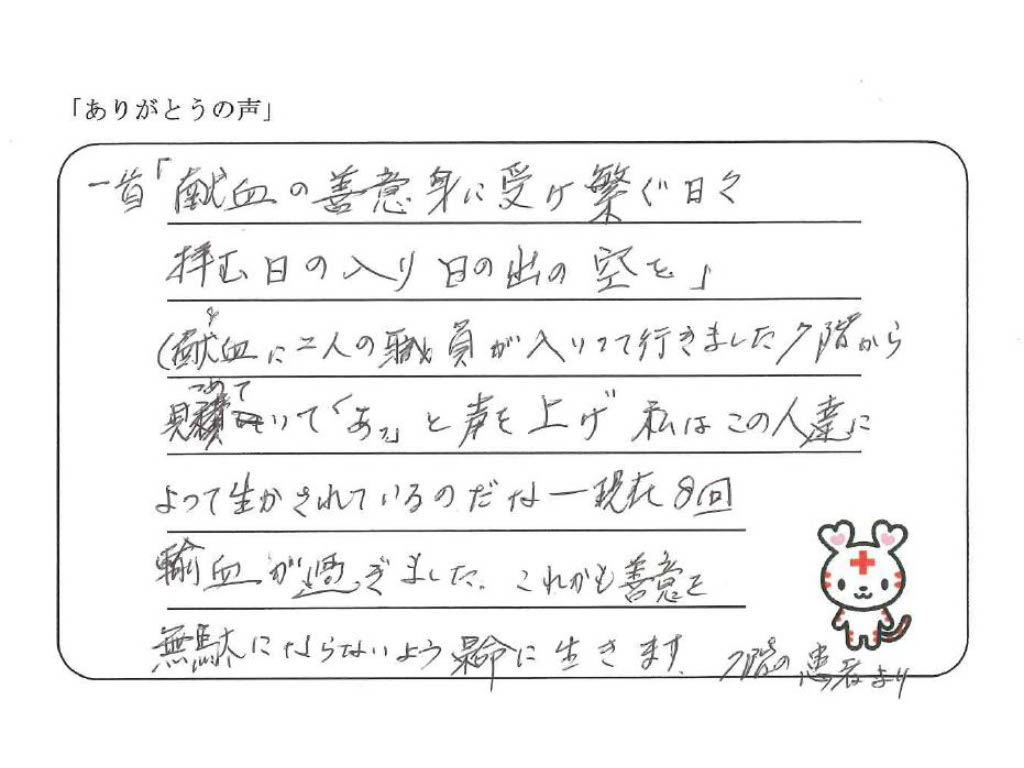 「ありがとうの声」
一首「献血の善意身に受け繋ぐ日々
拝む日の入り日の出の空を」
(献血に二人の職員が入りって行きました7階から
見つめていて「あっ」と声を上げ 私はこの人達に
よって生かされているのだなー現在8回
輸血が過ぎました. これからも善意を
無駄にならないよう懸命に生きます. 7階の患者より